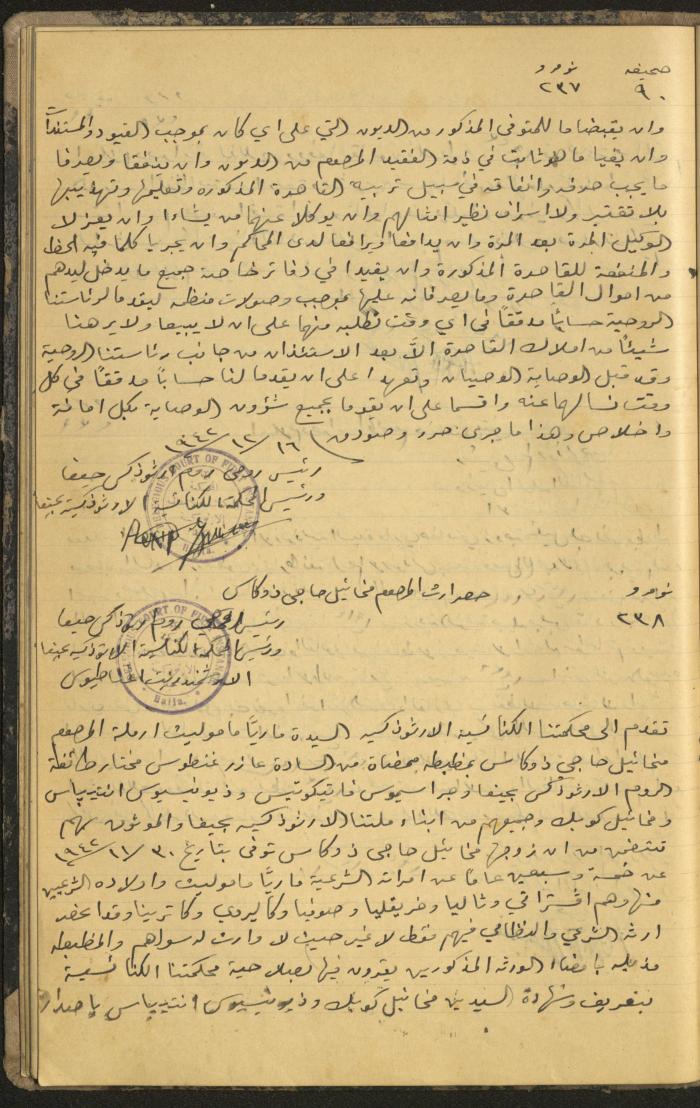 صحيفه نومرو
٩٠ ٢٣٧
وان يقبضا ما للمتوفي المذكور من الديون التي على اي كان بموجب القيود والمستندات
وان يفيا ما هو ثابت في ذمة الفقيد المرحوم من الديون وان ينفقا ويصرفا
ما يجب صرفه وانفاقه في سبيل تربية القاصرة المذكوره وتعليمها وتهذيبها
بلا تقتير ولا اسراف نظير امثالهم وان يوكلا عنهما من يشاءا وان يعزلا
الوكيل المرة بعد المرة وان يدافعا ويرافعا لدى المحاكم وان يجريا كلما فيه الحظ
والمنفعة للقاصرة المذكورة وان يقيدا في دفاتر خاصة جميع ما يدخل ليدهم
من اموال القاصرة وما يصرفانه عليها بموجب وصولات منظمه ليقدما لرئاستنا
الروحية حسابًا مدققًا في اي وقت نطلبه منهما على ان لا يبيعا ولا يرهنا
شيئًا من املاك القاصرة الاّ بعد الاستئذان من جانب رئاستنا الروحية
وقد قبل الوصاية الوصيان وتعهدا على ان يقدما لنا حسابًا مدققًا في كل
وقت نسألهما عنه واقسما على ان يقوما بجميع شؤون الوصاية بكل امانة
واخلاص وهذا ما جرى حرر وصودق ١٦ / ١٢ / ١٩٤٢
رئيس روحي روم ارثوذكس حيفا
ورئيس المحكمة الكنائسية الارثوذكسية بحيفا
نومرو حصر ارث المرحوم مخائيل حاجي ذوكاس
٢٣٨ رئيس روحي روم ارثوذكس حيفا
ورئيس المحكمة الكنائسية الارثوذكسية بحيفا
الارشمندريت اغناطيوس
تقدم الى محكمتنا الكنائسية الارثوذكسيه السيدة ماريّا مانوليت ارملة المرحوم
مخائيل حاجي ذوكاس بمظبطه ممضاة من السادة عازر غنطوس مختار طائفة
الروم الارثوذكس بحيفا وجراسيموس فارتيكوتيس وذيونيسيوس انتيباس
ومخائيل كوبك وجميعهم من ابناء ملتنا الارثوذكسيه بحيفا والموثوق بهم
تتضمن من ان زوجها مخائيل حاجي ذوكاس توفى بتاريخ ٣٠ / ١١ / ١٩٤٢
عن خمسة وسبعين عامًا عن امراته الشرعية ماريّا مانوليت واولاده الشرعيين
منها وهم وثاليا وصوفيا وكاليروي وكاترينا وقد انحصر
ارثه الشرعي والنظامي فيهم فقط لا غير حيث لا وارث له سواهم والمظبطه
مذيله بامضاء الورثه المذكورين يقرون فيها بصلاحية محكمتنا الكنائسية
بتعريف وشهادة السيدين مخائيل كوبك وذيونيسيوس انتيباس باصدار